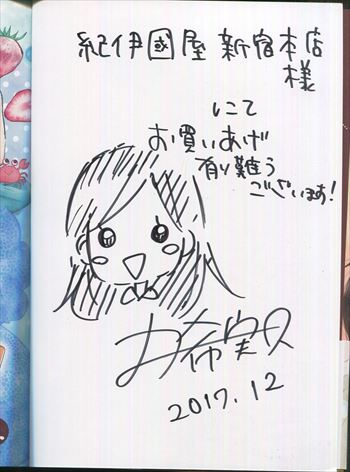 紀伊國屋 新宿本店
様
にて
お買いあげ
有り難う
ございます!
2017.12